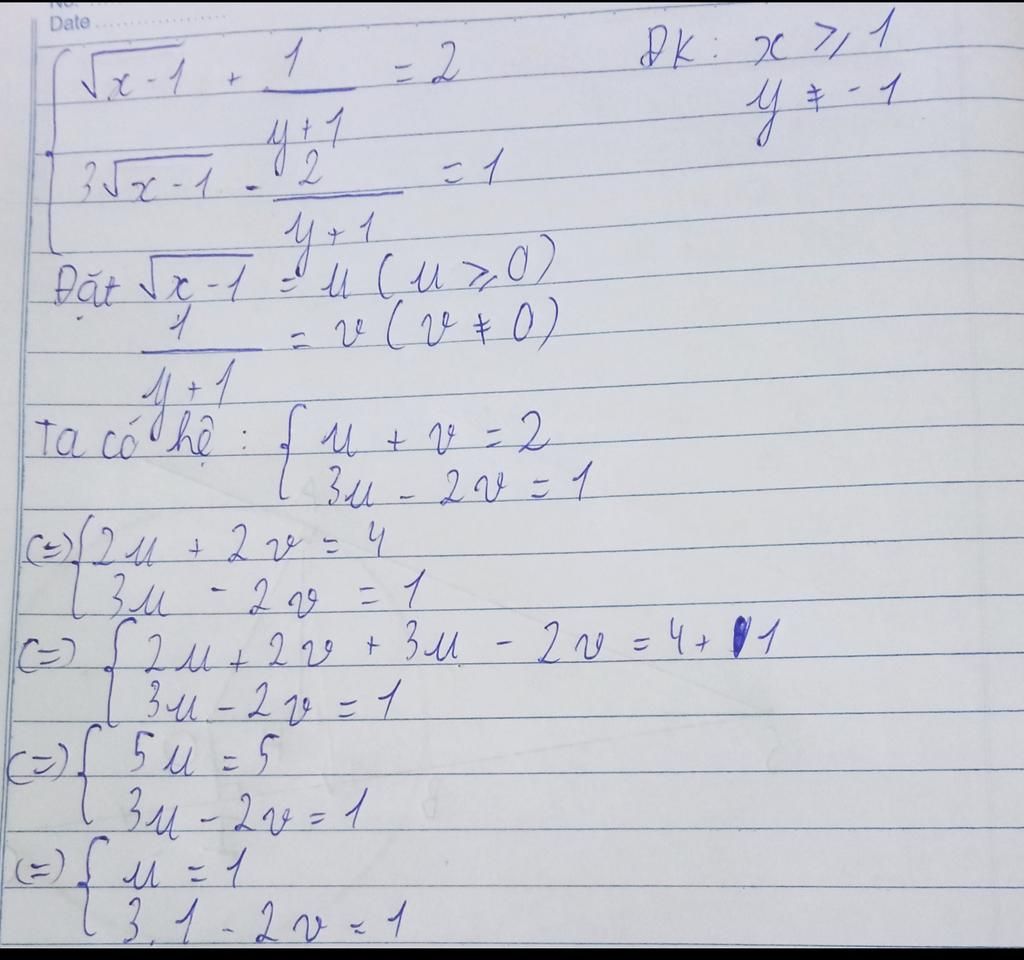 No.
Date
√x-1 + 1/y+1 = 2 ĐK: x ≥ 1
y ≠ -1
3√x-1 - 2/y+1 = 1
Đặt √x-1 = u (u ≥ 0)
1/y+1 = v (v ≠ 0)
Ta có hệ: { u + v = 2
3u - 2v = 1
(=) { 2u + 2v = 4
3u - 2v = 1
(=) { 2u + 2v + 3u - 2v = 4 + 1
3u - 2v = 1
(=) { 5u = 5
3u - 2v = 1
(=) { u = 1
3.1 - 2v = 1